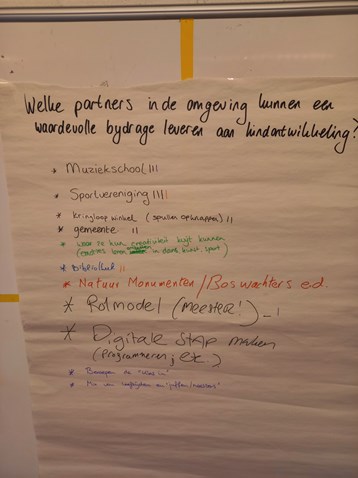 Welke partners in de omgeving kunnen een
waardevolle bydrage leveren aan kindontwikkeling?
* Muziekschool III
* Sportvereniging IIII
* kringloop winkel (spullen opknappen) II
* gemeente II
* waar ze hun creativiteit kwijt kunnen
in dans, kunst, sport)
* Bibliotheek II
* Natuur Monumenten/Boswachters ed.
* Rolmodel (Meester!) _ I
* Digitale stap maken
(Programmeren;
* Beroepen de "klas in"
*